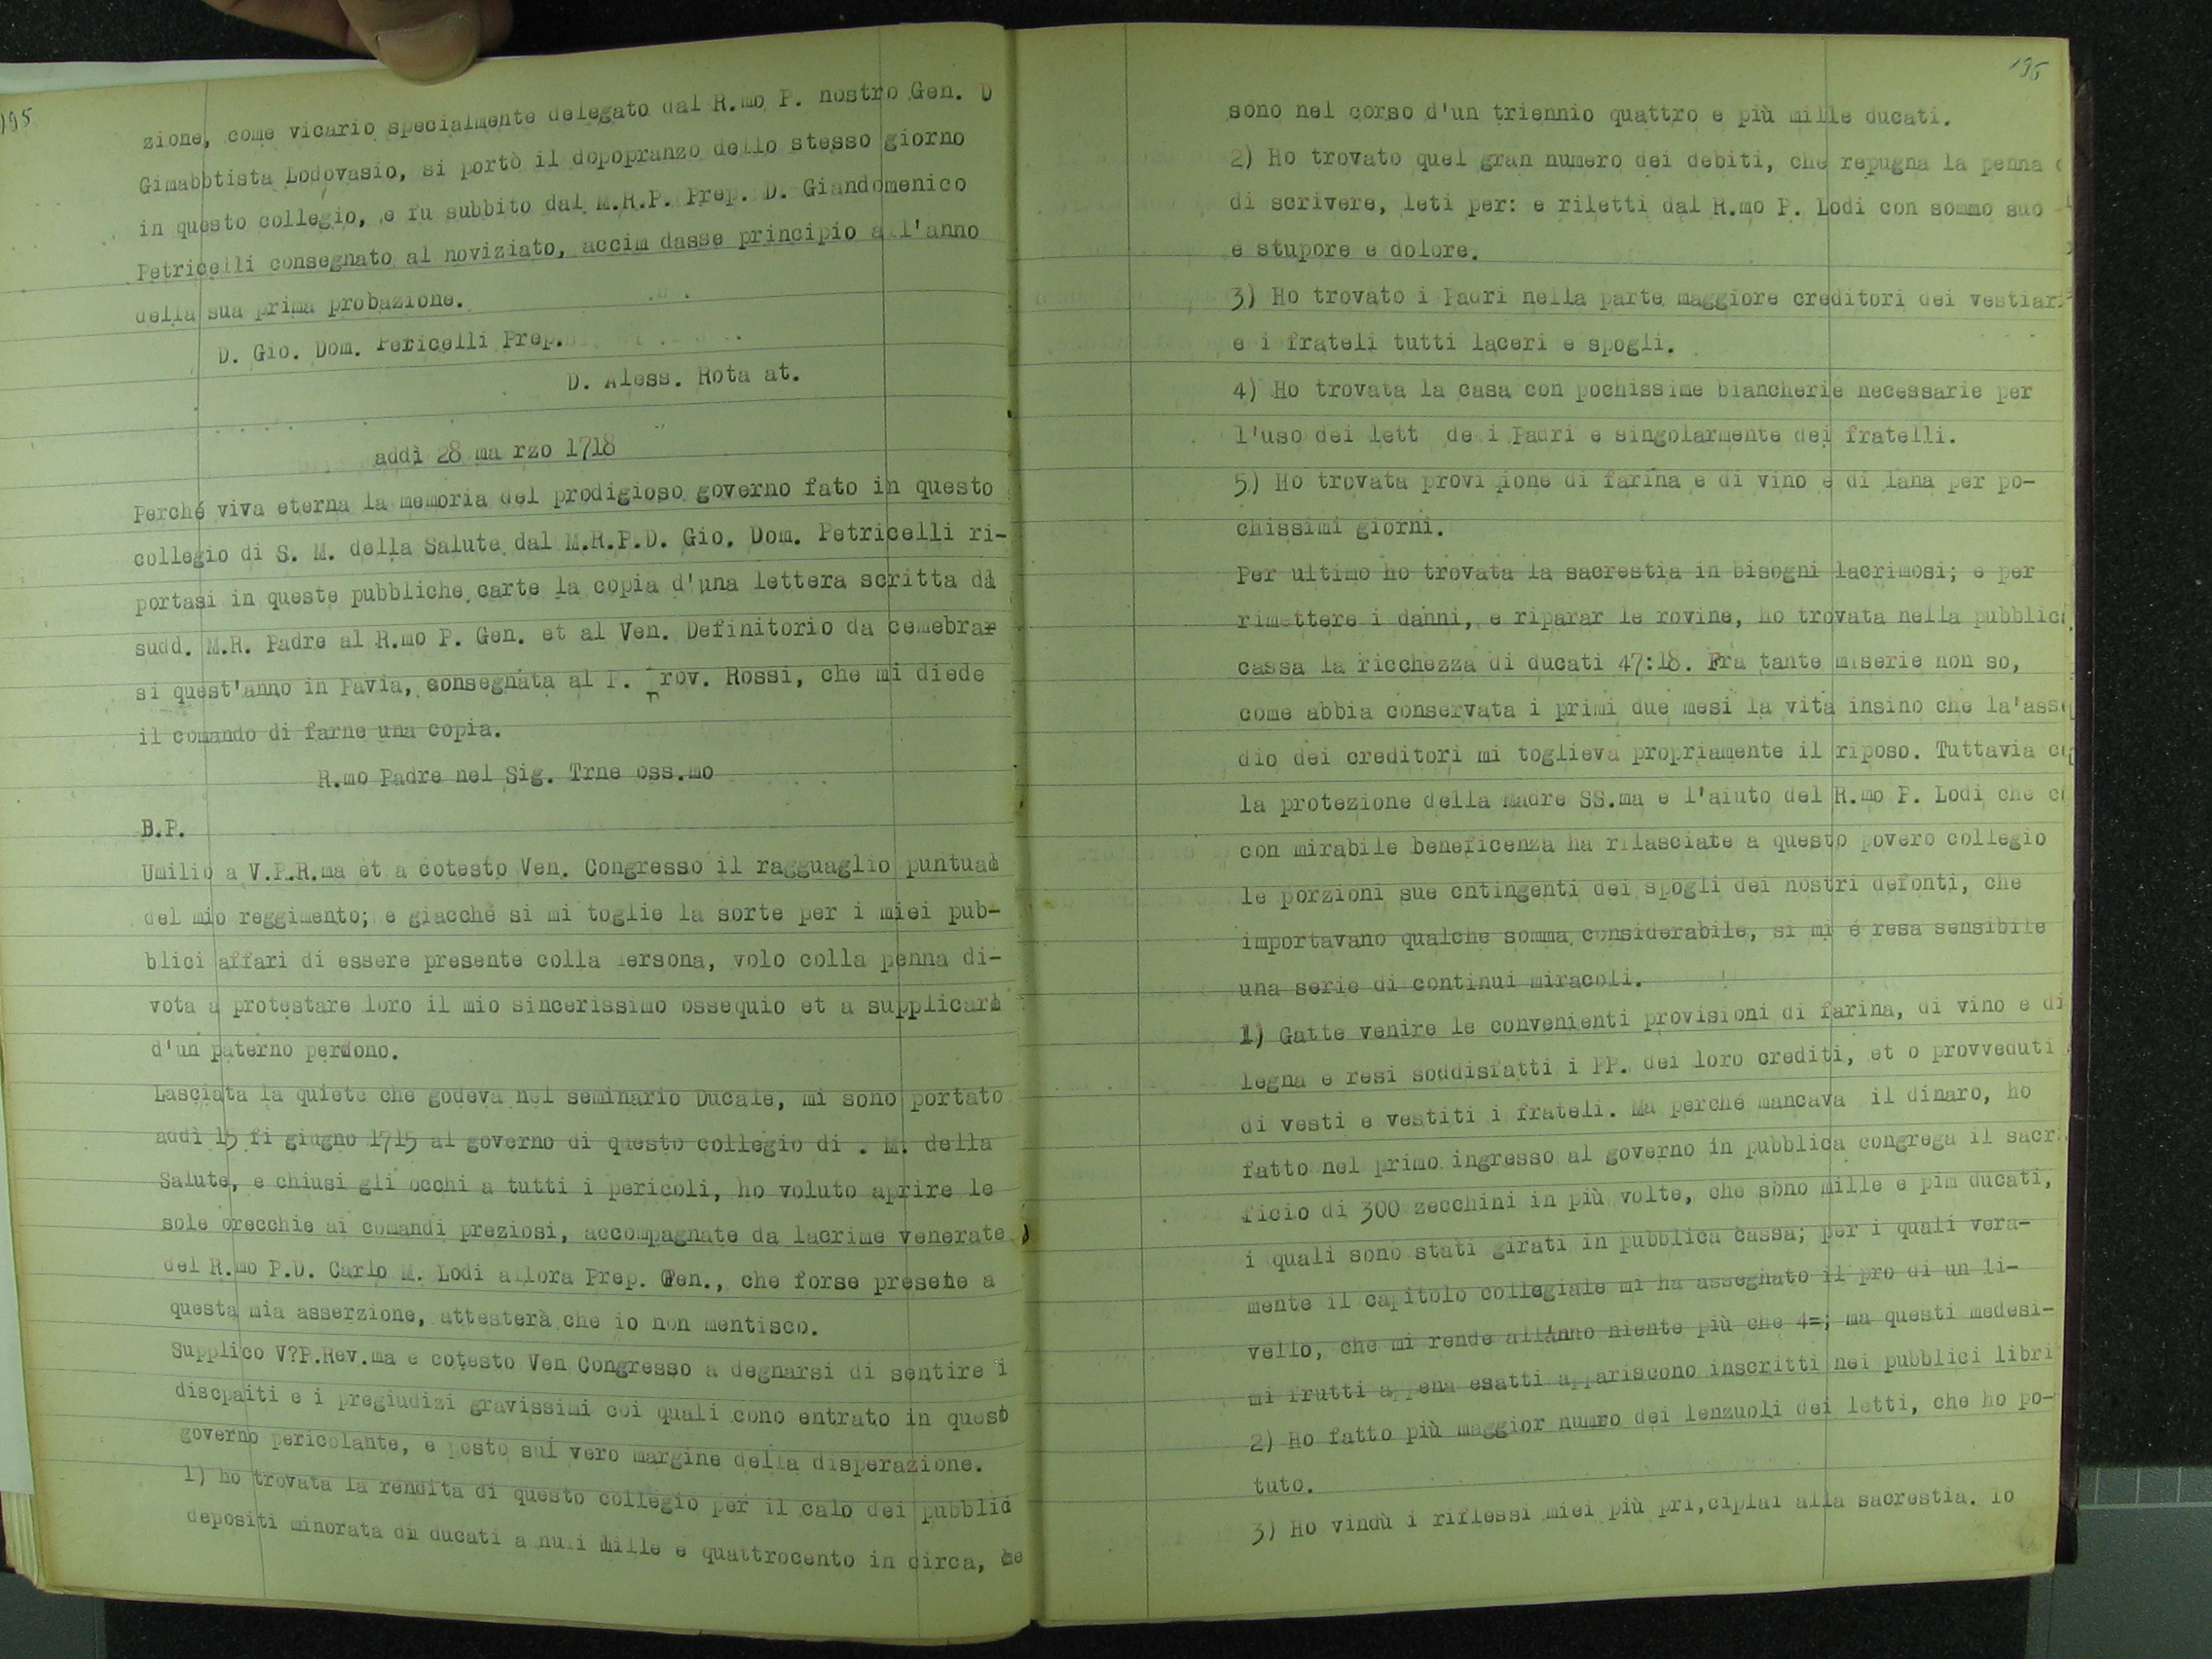 195
zione, come vicario specialmente delegato dal R.mo P. nostro Gen. D
Gimabbtista Lodovasio, si portò il dopopranzo dello stesso giorno
in questo collegio, e fu subbito dal M.R.P. Prep. D. Giandomenico
Petricelli consegnato al noviziato, accim dasse principio all'anno
della sua prima probazione.
D. Gio. Dom. Petricelli Prep.
D. Aless. Rota at.
addì 28 ma rzo 1718
Perché viva eterna la memoria del prodigioso governo fato in questo
collegio di S. M. della Salute dal M.R.P.D. Gio. Dom. Petricelli ri-
portasi in queste pubbliche carte la copia d'una lettera scritta
sudd. M.R. Padre al R.mo P. Gen. et al Ven. Definitorio da cemebrar
si quest'anno in Pavia, consegnata al P. Prov. Rossi, che mi diede
il comando di farne una copia.
R.mo Padre nel Sig. Trne oss.mo
B.P.
Umilio a V.P.R.ma et a cotesto Ven. Congresso il ragguaglio puntual
del mio reggimento; e giacché si mi toglie la sorte per i miei pub-
blici affari di essere presente colla Persona, volo colla penna di-
vota a protestare loro il mio sincerissimo ossequio et a supplicarl
d'un paterno perdono.
Lasciata la quiete che godeva nel seminario Ducale, mi sono portato
addì 15 fi giugno 1715 al governo di questo collegio di . M. della
Salute, e chiusi gli occhi a tutti i pericoli, ho voluto aprire le
sole orecchie ai comandi preziosi, accompagnate da lacrime venerate
del R.mo P.D. Carlo M. Lodi allora Prep. Gen., che forse presene a
questa mia asserzione, attesterà che io non mentisco.
Supplico V?P.Rev.ma e cotesto Ven Congresso a degnarsi di sentire i
discpaiti e i pregiudizi gravissimi coi quali cono entrato in quest
governo pericolante, e posto sul vero margine della disperazione.
1) ho trovata la rendita di questo collegio per il calo dei pubblic
depositi minorata di ducati a nuli mille e quattrocento in circa, he
196
sono nel corso d'un triennio quattro e più mille ducati.
2) Ho trovato quel gran numero dei debiti, che repugna la penna
di scrivere, leti per: e riletti dal R.mo P. Lodi con sommo suo
e stupore e dolore.
3) Ho trovato i Padri nella parte maggiore creditori dei vestiari
e i frateli tutti laceri e spogli.
4) Ho trovata la casa con pochissime biancherie necessarie per
l'uso dei lett de i Padri e singolarmente dei fratelli.
5) Ho trovata provi ione di farina e di vino e di lana per po-
chissimi giorni.
Per ultimo ho trovata la sacrestia in bisogni lacrimosi; e per
rimettere i danni, e riparar le rovine, ho trovata nella pubblic
cassa la ricchezza di ducati 47:18. Fra tante miserie non so,
come abbia conservata i primi due mesi la vita insino che la'asse
dio dei creditori mi toglieva propriamente il riposo. Tuttavia co
la protezione della Madre SS.ma e l'aiuto del R.mo P. Lodi che co
con mirabile beneficenza ha rilasciate a questo povero collegio
le porzioni sue cntingenti dei spogli dei nostri defonti, che
importavano qualche somma considerabile, si mi é resa sensibile
una serie di continui miracoli.
1) Gatte venire le convenienti provisioni di farina, di vino e di
legna e resi soddisfatti i PP. dei loro crediti, et o provveduti
di vesti e vestiti i frateli. Ma perché mancava il dinaro, ho
fatto nel primo ingresso al governo in pubblica congrega il sacr
ficio di 300 zecchini in più volte, che sono mille e pim ducati,
i quali sono stati girati in pubblica cassa; per i quali vera-
mente il capitolo collegiale mi ha assegnato il pro di un li-
vello, che mi rende all'anno niente più che 4=; ma questi medesi-
mi frutti appena esatti appariscono inscritti nei pubblici libri
2) Ho fatto più maggior numro dei lenzuoli dei letti, che ho po-
tuto.
3) Ho vindù i riflessi miei più pri,ciplai alla sacrestia. Io